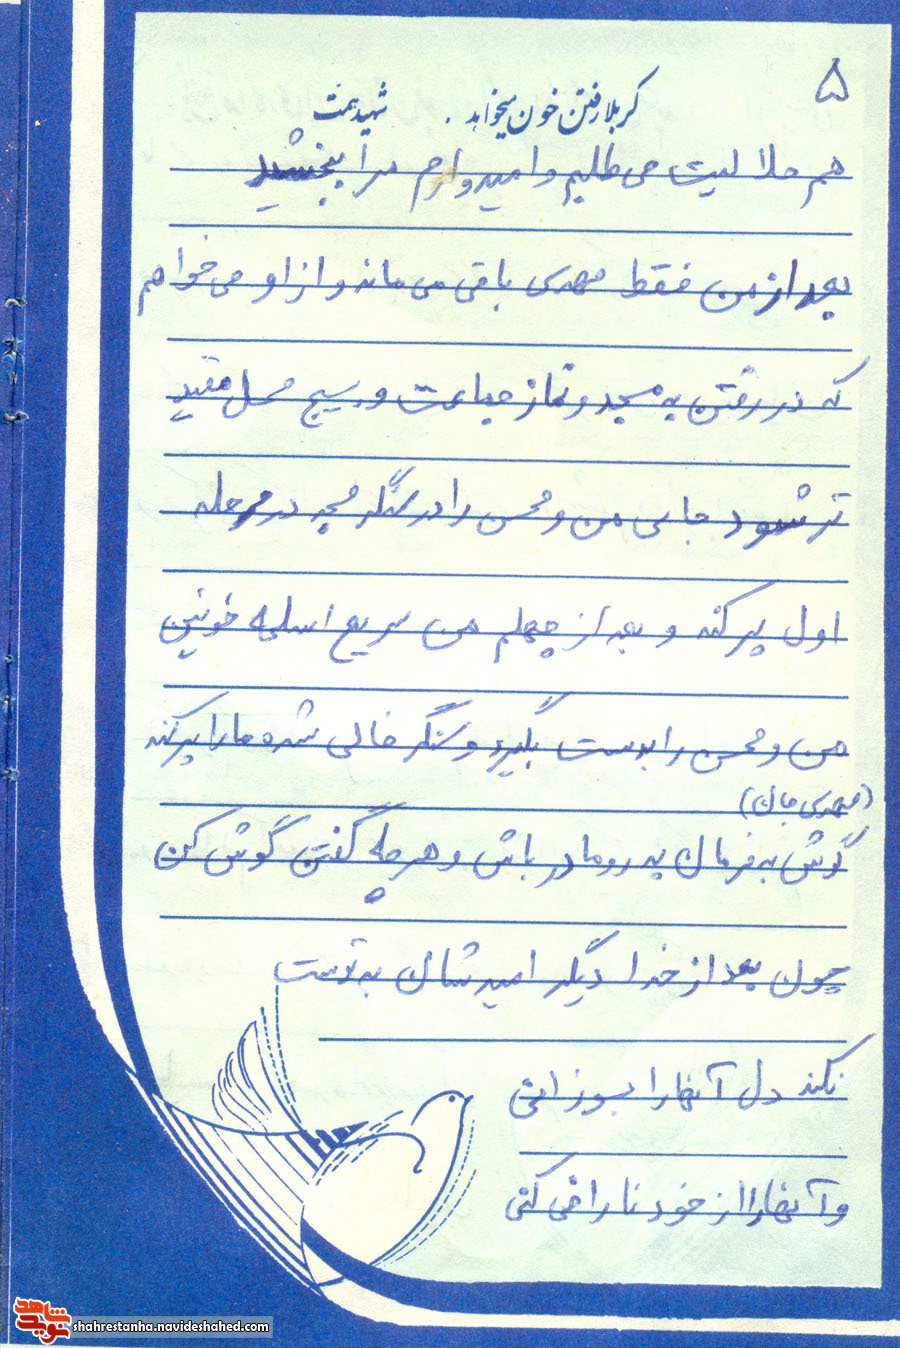 ۵
کربلا رفتن خون میخواهد . شهید همت
هم حلالیت می طلبم و امیدوارم مرا ببخشید
بعد از من فقط مهدی باقی می ماند و از او می خواهم
که در رفتن به مسجد و نماز جماعت و بسیج محل مقید
تر شود جای من و محسن را در سنگر مسجد در مرحله
اول پر کند و بعد از چهلم من سریع اسلحه خونین
من و محسن را بدست بگیرد و سنگر خالی شده ما را پر کند
(مهدی جان)
گوش به فرمان پدر و مادر باش و هر چه گفتن گوش کن
چون بعد از خدا دیگر امید شان به توست
نکند دل آنها را بسوزانی
و آنها را از خود ناراضی کنی
نوید شاهد
shahrestanha.navideshahed.com